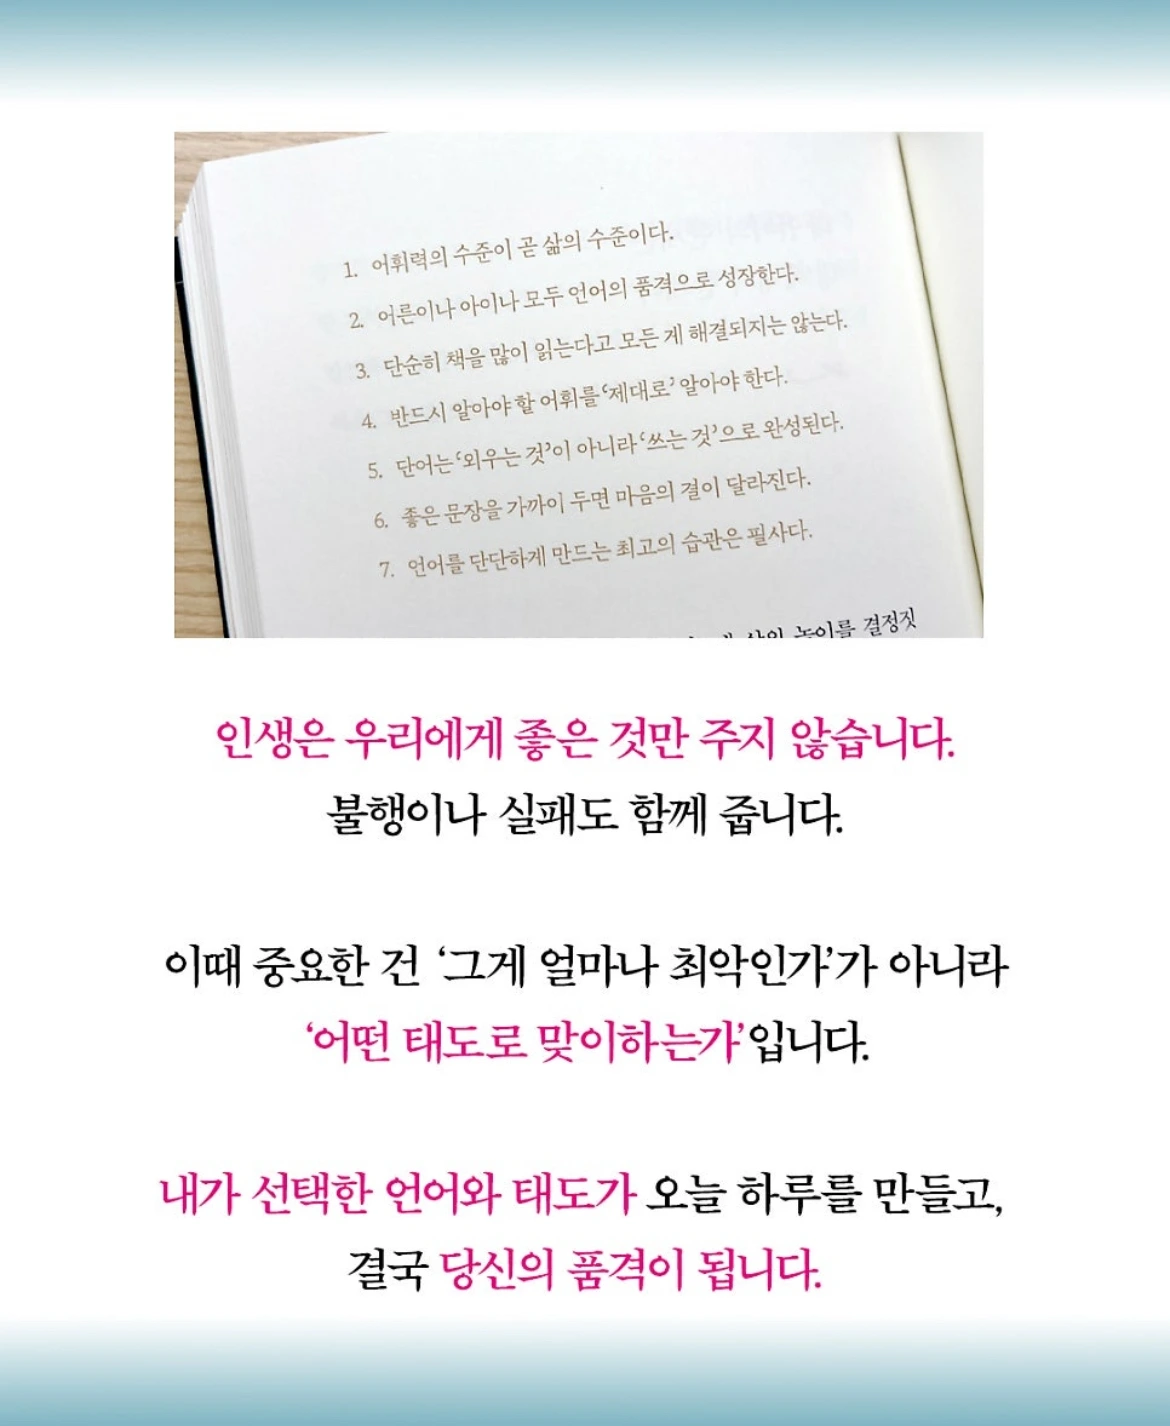 1. 어휘력의 수준이 곧 삶의 수준이다.
2. 어른이나 아이나 모두 언어의 품격으로 성장한다.
3. 단순히 책을 많이 읽는다고 모든 게 해결되지는 않는다.
4. 반드시 알아야 할 어휘를 ‘제대로’ 알아야 한다.
5. 단어는 ‘외우는 것’이 아니라 ‘쓰는 것’으로 완성된다.
6. 좋은 문장을 가까이 두면 마음의 결이 달라진다.
7. 언어를 단단하게 만드는 최고의 습관은 필사다.
삶의 높이를 결정짓
인생은 우리에게 좋은 것만 주지 않습니다.
불행이나 실패도 함께 줍니다.
이때 중요한 건 ‘그게 얼마나 최악인가’가 아니라
‘어떤 태도로 맞이하는가’입니다.
내가 선택한 언어와 태도가 오늘 하루를 만들고,
결국 당신의 품격이 됩니다.